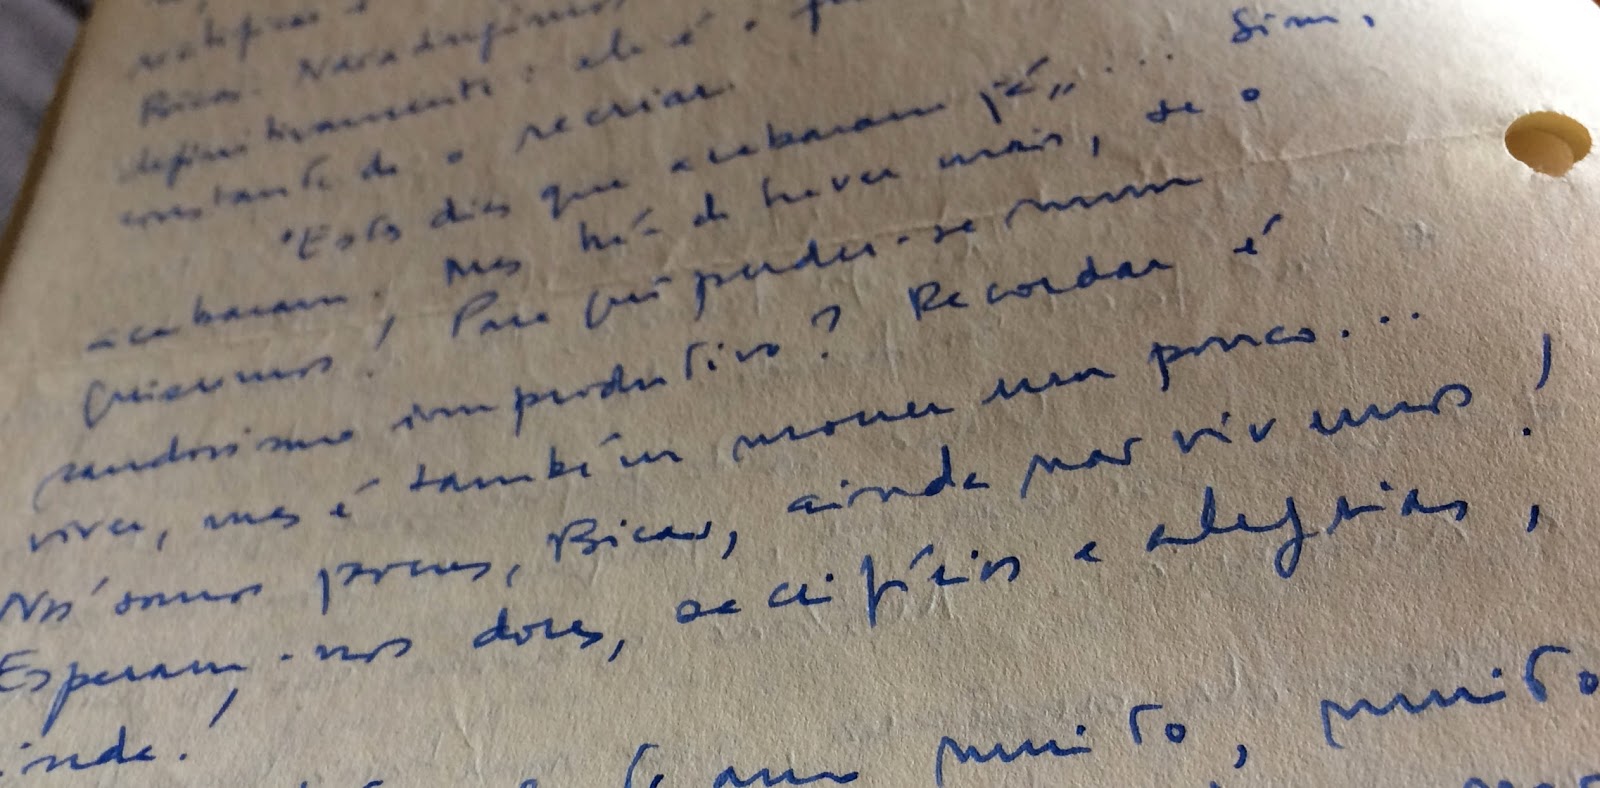 Bicas. Nada
definitivamente: ele é o
constante do o recriar.
"Estes dias que acabaram já"... Sim,
acabaram. Mas há-de haver mais, se o
quisermos! Para quê perder-se num
saudosismo improdutivo? Recordar é
viver, mas é também morrer um pouco...
Nós somos poucos, Bicas, ainda nos vivemos!
Esperam-nos dores, sacrifícios e alegrias,
inda!
muito, muito